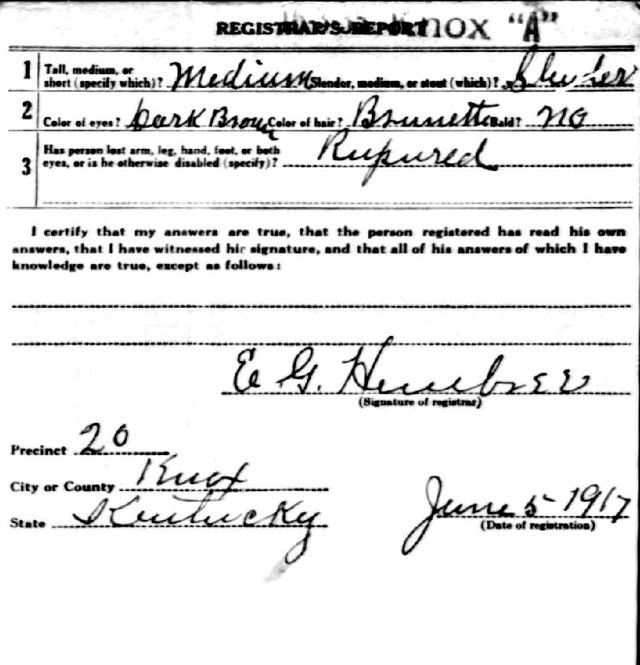 REGISTRAR'S REPORT KNOX "A"
1 Tall, medium, or short (specify which)? Medium Slender, medium, or stout (which)? Slender
2 Color of eyes? Dark Brown Color of hair? Brunett Bald? no
3 Has person lost arm, leg, hand, foot, or both
eyes, or is he otherwise disabled (specify)? Rupured
I certify that my answers are true, that the person registered has read his own
answers, that I have witnessed his signature, and that all of his answers of which I have
knowledge are true, except as follows:
E G. Hembree
(Signature of registrar)
Precinct 20
City or County Knox
State Kentucky
June 5-1917
(Date of registration)